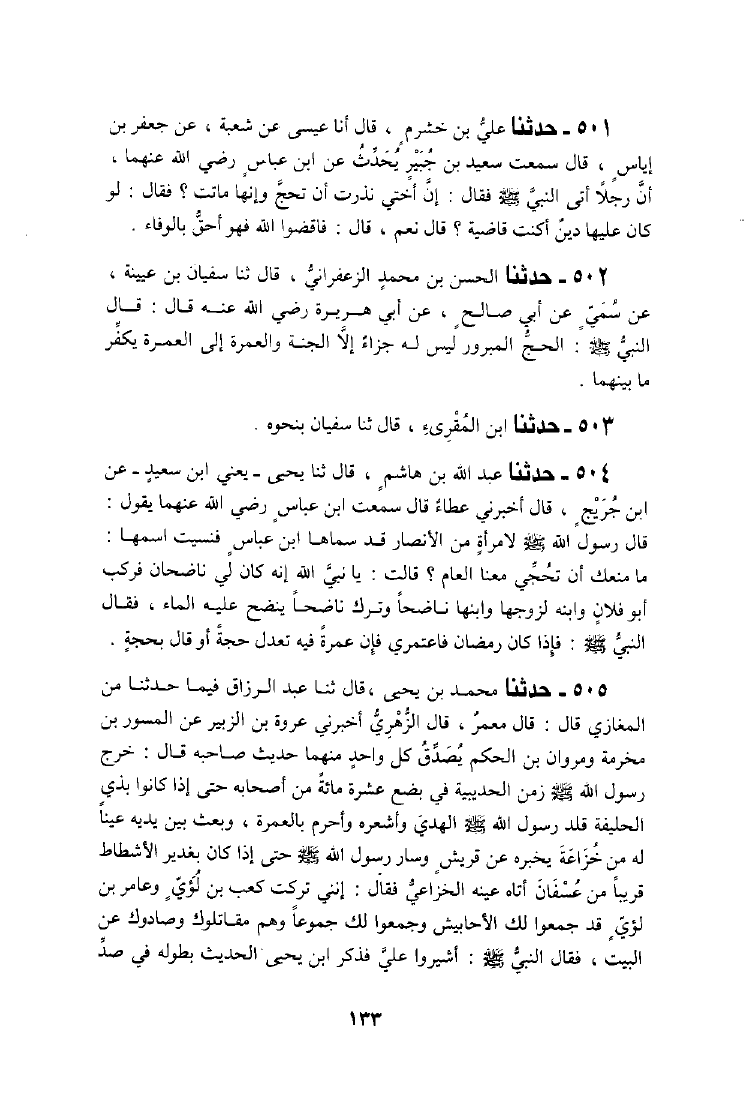 ٥٠١ ـ حدثنا عليُّ بن خشرمٍ ، قال أنا عيسى عن شعبة ، عن جعفر بن
إياسٍ ، قال سمعت سعيد بن جُبَيْرٍ يُحَدِّثُ عن ابن عباسٍ رضي الله عنهما ،
أنَّ رجلًا أتى النبيَّ ﷺ فقال : إنَّ أختي نذرت أن تحجَّ وإنها ماتت ؟ فقال : لو
كان عليها دينٌ أكنت قاضية ؟ قال نعم ، قال : فاقضوا الله فهو أحقُّ بالوفاء .
٥٠٢ ـ حدثنا الحسن بن محمدٍ الزعفرانيُّ ، قال ثنا سفيان بن عيينة ،
عن سُمَيّ عن أبي صالحٍ ، عن أبي هريرة رضي الله عنه قال : قال
النبيُّ ﷺ : الحجُّ المبرور ليس له جزاءٌ إلَّا الجنة والعمرة إلى العمرة يكفِّر
ما بينهما .
٥٠٣ ـ حدثنا ابن المُقْرِىءِ ، قال ثنا سفيان بنحوه .
٥٠٤ ـ حدثنا عبد الله بن هاشمٍ ، قال ثنا يحيى ـ يعني ابن سعيدٍ ـ عن
ابن جُرَيْجٍ ، قال أخبرني عطاءٌ قال سمعت ابن عباسٍ رضي الله عنهما يقول :
قال رسول الله ﷺ لامرأةٍ من الأنصار قد سماها ابن عباسٍ فنسيت اسمها :
ما منعك أن تحُجِّي معنا العام ؟ قالت : يا نبيَّ الله إنه كان لي ناضحان فركب
أبو فلانٍ وابنه لزوجها وابنها ناضحاً وترك ناضحاً ينضح عليه الماء ، فقال
النبيُّ ﷺ : فإِذا كان رمضان فاعتمري فإن عمرةً فيه تعدل حجةً أو قال بحجةٍ .
٥٠٥ ـ حدثنا محمد بن يحيى ، قال ثنا عبد الرزاق فيما حدثنا من
المغازي قال : قال معمرٌ ، قال الزُّهْرِيُّ أخبرني عروة بن الزبير عن المسور بن
مخرمة ومروان بن الحكم يُصَدِّقُ كل واحدٍ منهما حديث صاحبه قال : خرج
رسول الله ﷺ زمن الحديبية في بضع عشرة مائةً من أصحابه حتى إذا كانوا بذي
الحليفة قلد رسول الله ﷺ الهديَ وأشعره وأحرم بالعمرة ، وبعث بين يديه عيناً
له من خُزَاعَةَ يخبره عن قريشٍ وسار رسول الله ﷺ حتى إذا كان بغدير الأشطاط
قريباً من عُسْفَانَ أتاه عينه الخزاعيُّ فقال : إنني تركت كعب بن لُؤَيٍّ وعامر بن
لؤيٍّ قد جمعوا لك الأحابيش وجمعوا لك جموعاً وهم مقاتلوك وصادوك عن
البيت ، فقال النبيُّ ﷺ : أشيروا عليَّ فذكر ابن يحيى الحديث بطوله في صدِّ
١٣٣